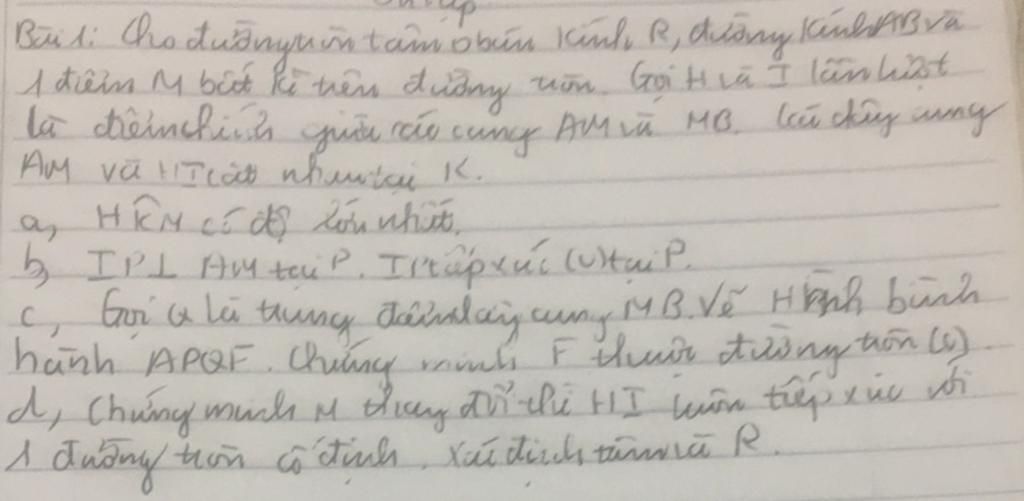 Bài 1: Cho đường tròn tâm O bán kính R, đường kính AB và
1 điểm M bất kì trên đường tròn. Gọi H và I lần lượt
là điểm chính giữa các cung AM và MB. Các dây cung
AM và HI cắt nhau tại K.
a, HKM có độ lớn nhất.
b, IP⊥ AM tại P. IP tiếp xúc (O) tại P.
c, Gọi Q là trung điểm dây cung MB. Vẽ Hình bình
hành APQF. Chứng minh F thuộc đường tròn (O).
d, Chứng minh M thay đổi thì HI luôn tiếp xúc với
1 đường tròn cố định. Xác định tâm và R.